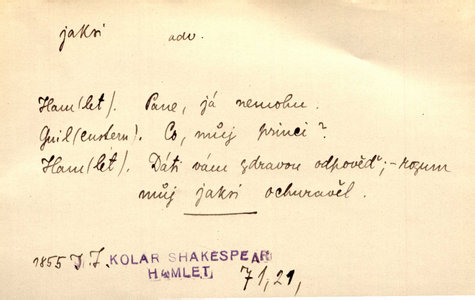 jaksi adv.
Ham(let). Pane, já nemohu.
Guil(enstern). Co, můj princi?
Ham(let). Dáti vám zdravou odpověď; - rozum
můj jaksi ochuravěl.
1855 D. J. KOLAR SHAKESPEAR
HAMLET 71,21,